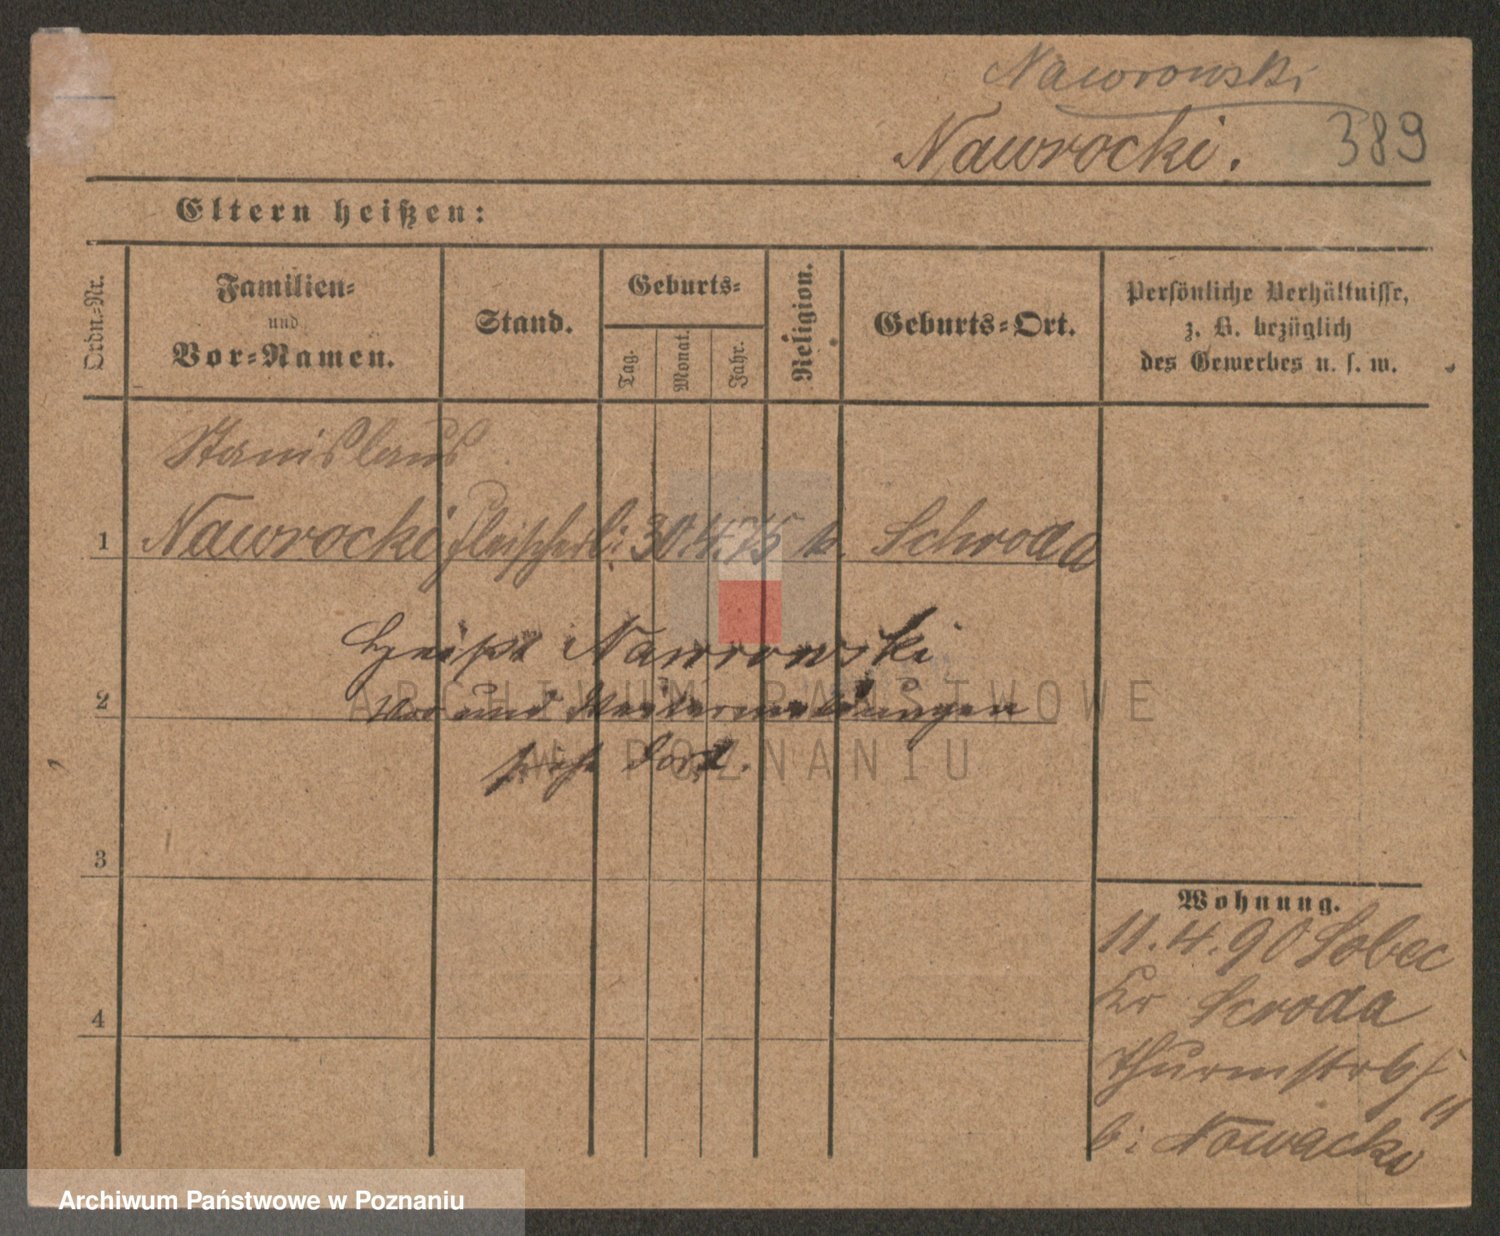 Nawrowski
Nawrocki. 389
Eltern heißen:
Ordn.-Nr.
Familien-
und
Vor-Namen.
Stand.
Geburts-
Tag.
Monat.
Jahr.
Religion.
Geburts-Ort.
Persönliche Verhältnisse,
z. B. bezüglich
des Gewerbes u. s. w.
Stanislaus
1 Nawrocki Fleischerl: 30. 4. 75 k. Schroda
Heißt Nawrowski
2 Vor und Weitermeldungen
siehe dort.
3
4
Wohnung.
11. 4. 90 Sobec
Kr Scroda
Thurmstr 6
11
b: Nowacki
ARCHIWUM PAŃSTWOWE
W POZNANIU
Archiwum Państwowe w Poznaniu